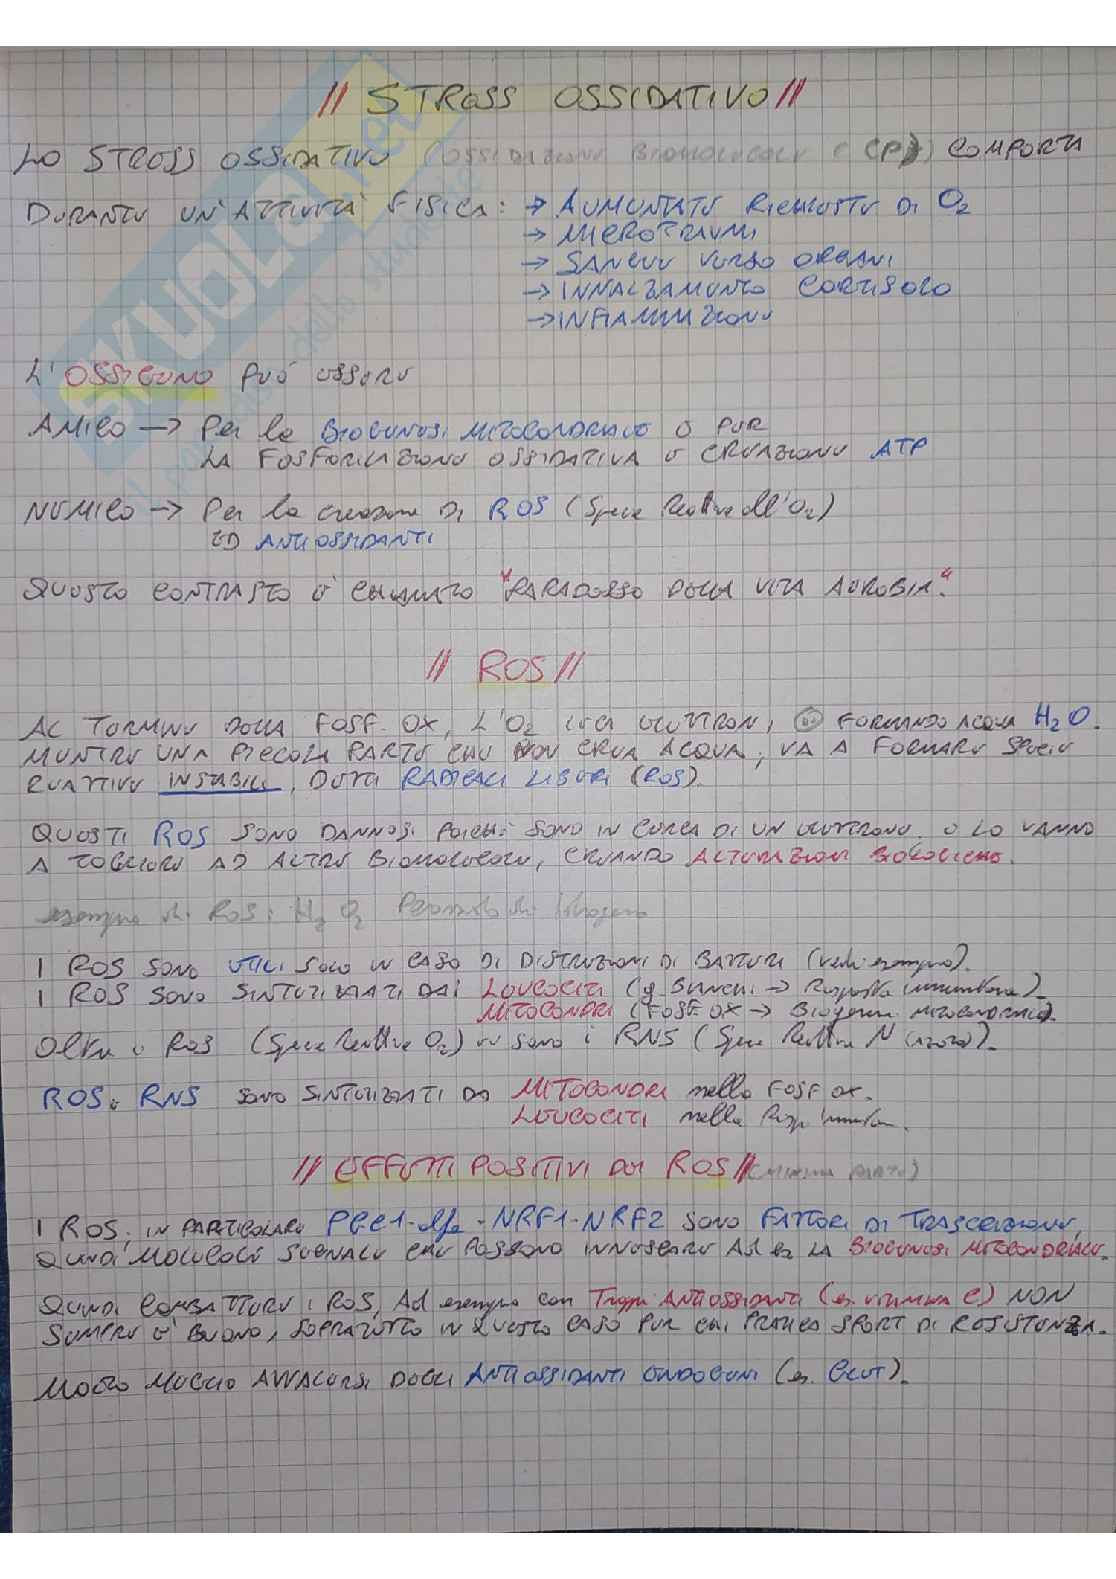 // STRESS OSSIDATIVO //
LO STRESS OSSIDATIVO (OSSIDAZIONE BIOMOLECOLE E CP) COMPORTA
DURANTE UN'ATTIVITÀ FISICA: → AUMENTATE RICHIESTE DI O2
→ MICROTRAUMI
→ SANGUE VERSO ORGANI
→ INNALZAMENTO CORTISOLO
→ INFIAMMAZIONE
L'OSSIGENO PUÒ ESSERE
AMICO → Per la BIOGENESI MITOCONDRIALE O PER
LA FOSFORILAZIONE OSSIDATIVA E CREAZIONE ATP
NEMICO → Per la creazione di ROS (Specie Reattive dell'O2)
ED ANTIOSSIDANTI
QUESTO CONTRASTO È CHIAMATO "PARADOSSO DELLA VITA AEROBIA".
// ROS //
AL TERMINE DELLA FOSF. OX, L'O2 LEGA ELETTRONI, FORMANDO ACQUA H2O.
MENTRE UNA PICCOLA PARTE CHE NON CREA ACQUA, VA A FORMARE SPECIE
REATTIVE INSTABILI, DETTI RADICALI LIBERI (ROS).
QUESTI ROS SONO DANNOSI POICHÈ SONO IN CERCA DI UN ELETTRONE E LO VANNO
A TOGLIERE AD ALTRE BIOMOLECOLE, CREANDO ALTERAZIONI BIOLOGICHE.
esempio di ROS: H2 O2 Perossido di idrogeno
I ROS SONO UTILI SOLO IN CASO DI DISTRUZIONI DI BATTERI (vedi esempio).
I ROS SONO SINTETIZZATI DAI LEUCOCITI (g. Bianchi → Risposta immunitaria)
MITOCONDRI (FOSF. OX → Biogenesi MITOCONDRIALE).
Oltre ai ROS (Specie Reattive O2) vi sono i RNS (Specie Reattive N (azoto)).
ROS e RNS SONO SINTETIZZATI DA MITOCONDRI nella FOSF OX.
LEUCOCITI nella Risp. immunitaria.
// EFFETTI POSITIVI DEI ROS //
I ROS, IN PARTICOLARE PGC1-alfa - NRF1 - NRF2 SONO FATTORI DI TRASCRIZIONE,
QUINDI MOLECOLE SEGNALE CHE POSSONO INNESCARE AD es LA BIOGENESI MITOCONDRIALE.
QUINDI COMBATTERE I ROS, AD esempio con Troppi ANTIOSSIDANTI (es. VITAMINA C) NON
SEMPRE È BUONO, SOPRATUTTO IN QUESTO CASO PER CHI PRATICA SPORT DI RESISTENZA.
MOLTO MEGLIO AVVALERSI DEGLI ANTIOSSIDANTI ENDOGENI (es. GLUT).